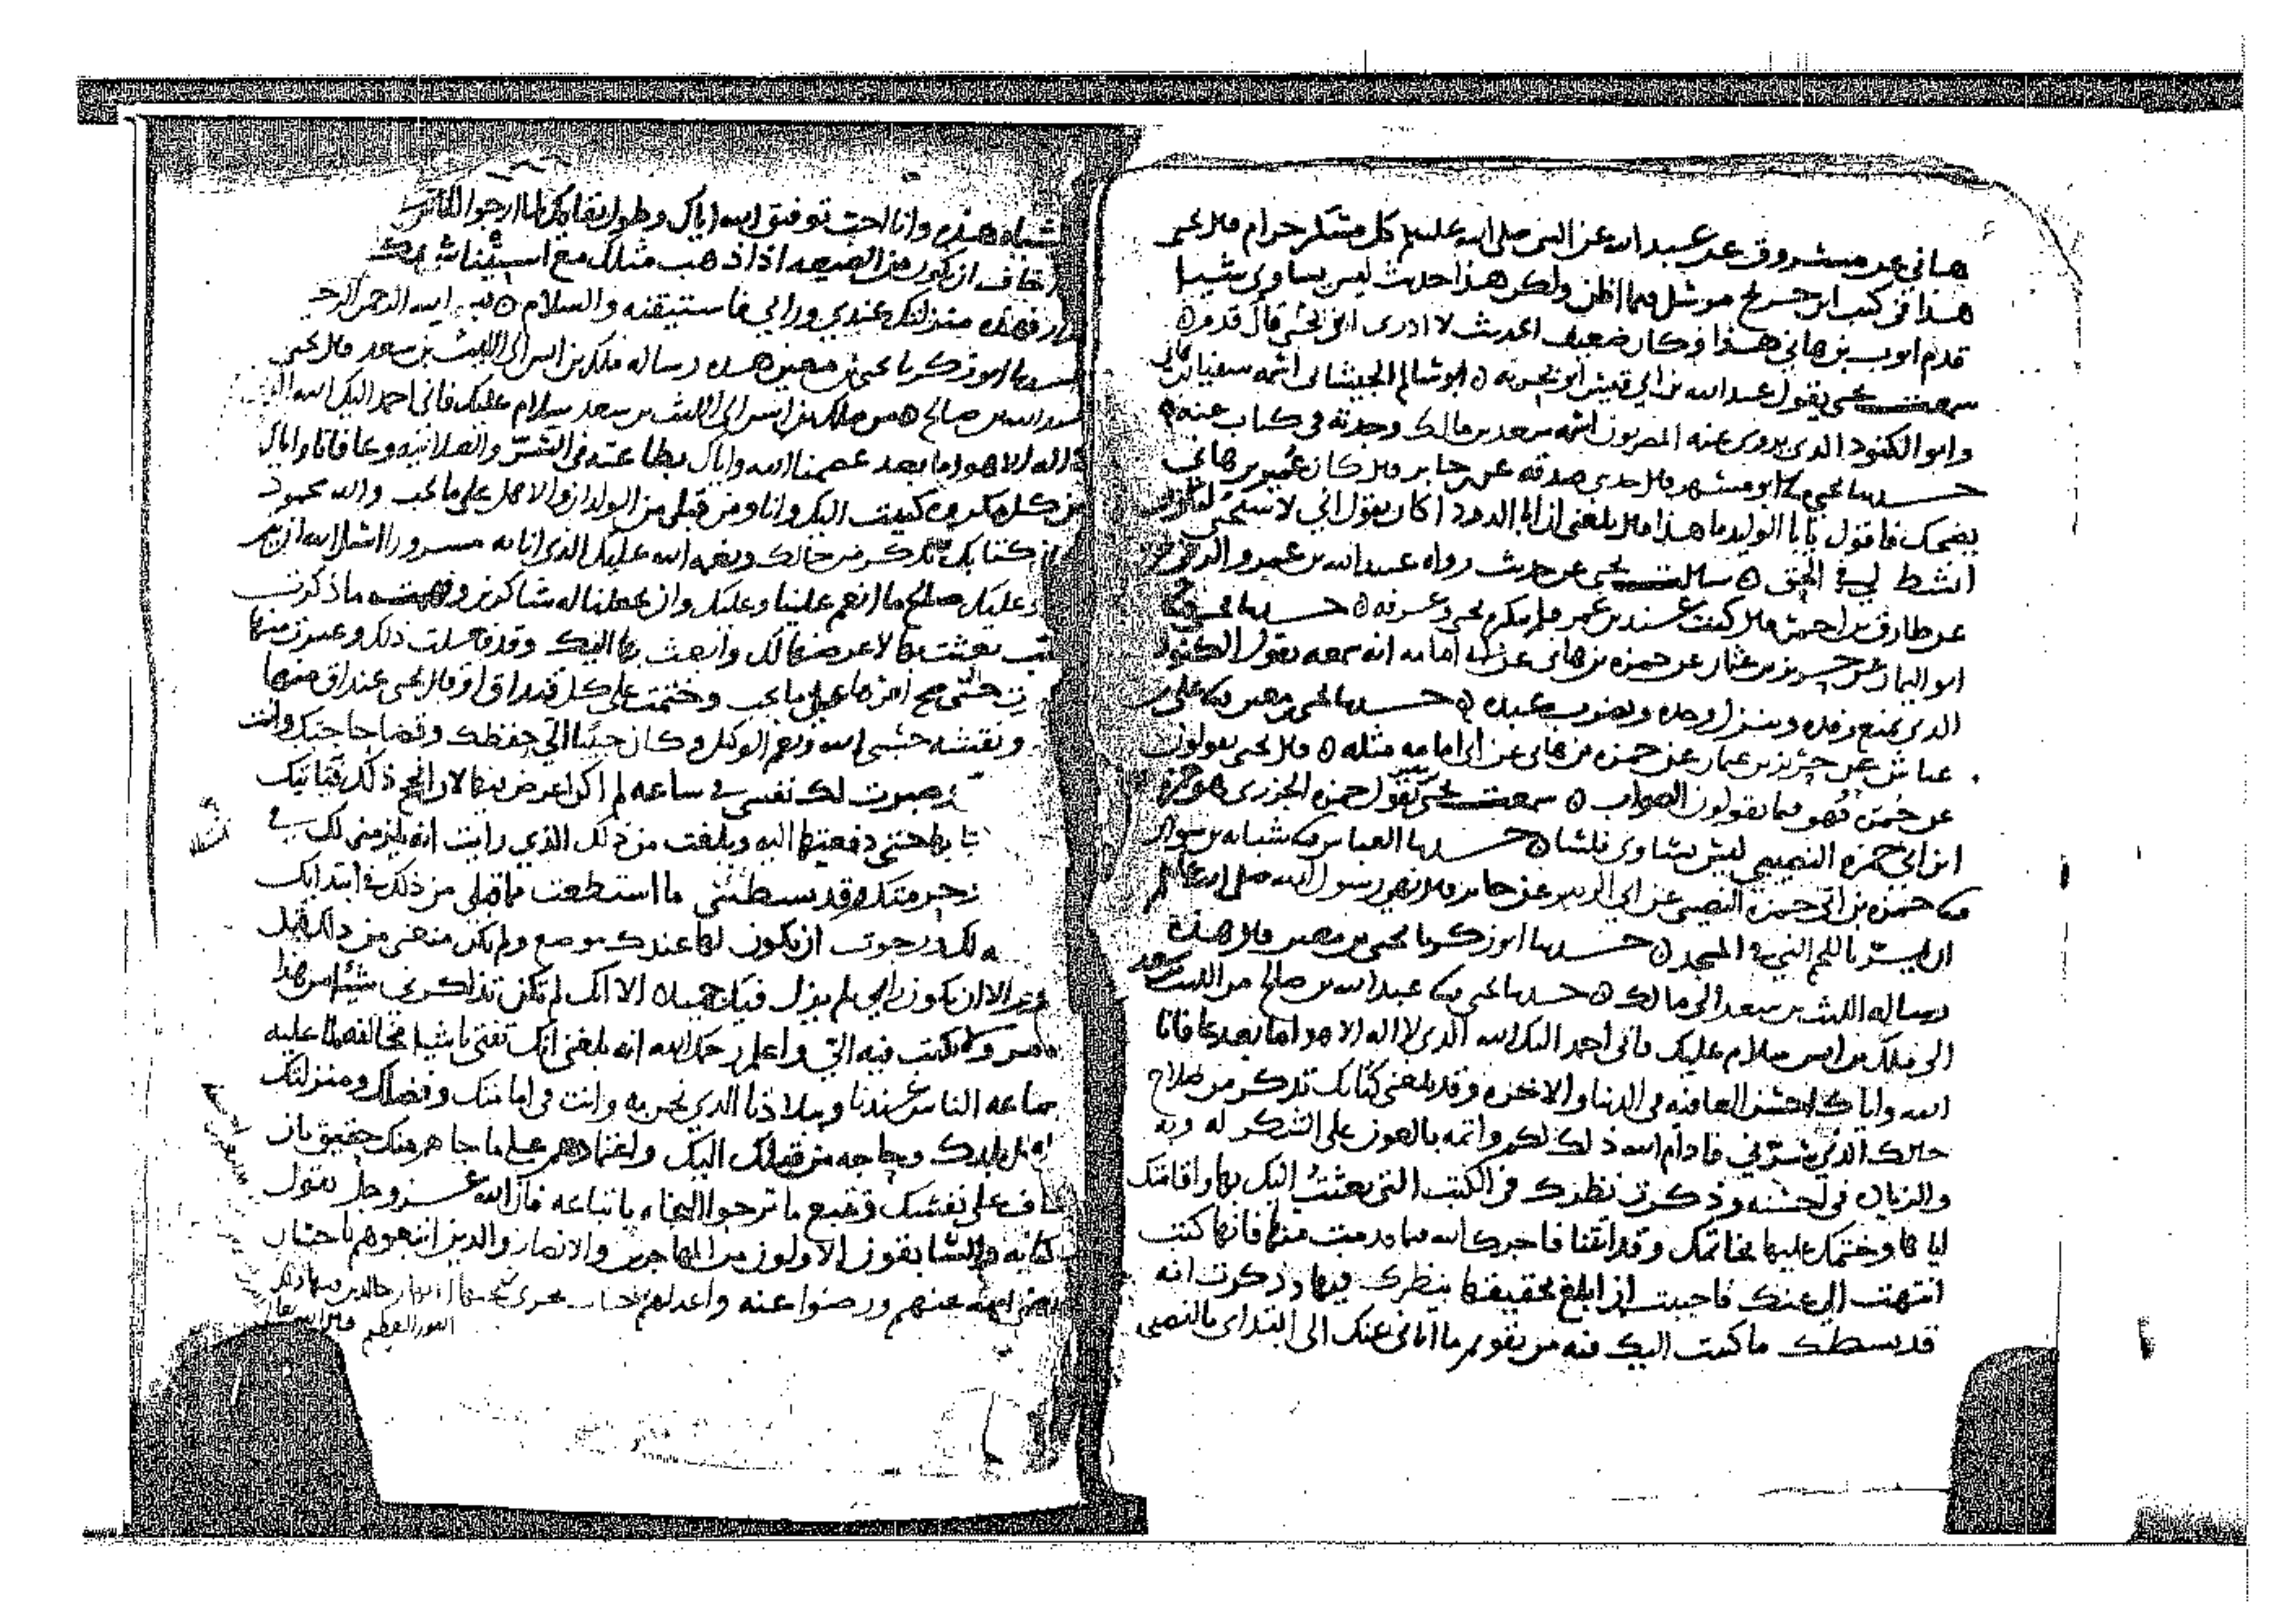 هانى عن مسروق عن عبد الله عن النبي صلى الله عليه وسلم كل مسكر حرام قال يحيى
هذا في كتب ابن جريج مرسل فيما اظن ولكن هذا حديث ليس يساوى شيا
قدم ايوب بن هانى هذا وكان ضعيف الحديث لا ادرى اى شى قال قدم
سمعت يحيى يقول عبد الله بن ابي قيس ابو بحرية ابو سالم الجيشانى اسمه سفيان بن هانى
وابو الكنود الذي يروى عنه المصريون اسمه سعد بن مالك وجدته في كتاب عنه
حدثنا يحيى نا ابو مسهر قال حدثنى صدقه عن جابر قال كان عمير بن هانى
يضحك فاقول يا با الوليد ما هذا قال بلغنى ان ابا الدرداء كان يقول انى لاستجم ليكون
انشط لي في الحق سالت يحيى عن حديث رواه عبيد الله بن عمرو الرقى
عن طارق بن احمر قال كنت عند ابن عمر فلم ينكره يحيى وعرفه حدثنا يحيى نا
ابو اليمان عن حريز بن عثمان عن حمزه بن هانى عن ابى امامه انه سمعه يقول الكنود
الذى يمنع رفده وينزل وحده ويضرب عبده حدثنا يحيى بن معين نا على بن
عياش عن حريز بن عثمان عن حمزه بن هانى عن ابى امامه مثله قال يحيى يقولون
عن حمزة فهو فيما يقولون الصواب سمعت يحيى يقول حمزه الجزرى هو حمزه
ابن ابى حمزه النصيبى ليس يساوى فلسا حدثنا العباس نا شبابه بن سوار
نا حمزه بن ابى حمزة النصيبى عن ابى الزبير عن جابر قال نهى رسول الله صلى الله عليه وسلم
ان يمر باللحم النى في المسجد حدثنا ابو زكريا يحيى بن معين قال هذه
رساله الليث بن سعد الى مالك حدثنا يحيى نا عبد الله بن صالح من الليث بن سعد
الى ملك بن انس سلام عليك فانى احمد اليك الله الذى لا اله الا هو اما بعد عافانا
الله واياك واحسن العافيه فى الدنيا والاخره وقد بلغنى كتابك تذكر من صلاح
حالك الذى يسرني فادام الله ذلك لكم واتمه بالعون على الشكر له وبه
والزياده فى احسنه وذكرت نظرك في الكتب التى بعثت اليك بها واقامتك
اياها وختمك عليها بخاتمك وقد اتتنا فاجرك الله فيما قدمت منها فانها كتب
انتهت الى عنك فاحببت ان ابلغ تحقيقها بنظرك فيها وذكرت انه
قد بسطك ما كتبت اليك فيه من تقويم ما اتانى عنك الى ابتداى بالنصيحه
هذه وانا احب توفيق الله اياك وطول بقايك لما ارجو للناس
اخاف ان يكون من الضيعه اذا ذهب مثلك مع استيناسى بك
الدار فهذه منزلتك عندي ورايى فاستيقنه والسلام بسم الله الرحمن الرحيم
حدثنا ابو زكريا يحيى بن معين هذه رساله ملك بن انس الى الليث بن سعد قال يحيى
عبد الله بن صالح من ملك بن انس الى الليث بن سعد سلام عليك فانى احمد اليك الله الذى
لا اله الا هو اما بعد عصمنا الله واياك بطاعته فى السر والعلانيه وعافانا واياك
من كل مكروه كتبت اليك وانا ومن قبلى من الولدان والاهل على ما تحب والله محمود
كتابك تذكر من حالك ونعمه الله عليك الذى انا به مسرورا اسل الله ان يتم
وعليك صالح ما انعم علينا وعليك وان يجعلنا له شاكرين وفهمت ما ذكرت
كتب بعثت بها لاعرضها لك وابعث بها اليك وقد فعلت ذلك وغيرت منها
حتى صح امرها على ما يحب وختمت على كل قنداق قال يحيى عنداق منها
ونقشه حسبى الله ونعم الوكيل وكان حبيبا الى حفظك وقضا حاجتك وانت
وصبرت لك نفسى فى ساعه لم اكن اعرض فيها لان انجح ذلك فتاتيك
بها حتى دفعتها اليه وبلغت من ذلك الذي رايت انه يلزمنى لك فى
وحرمتك وقد بسطنى ما استطعت مما قبلى من ذلك فى ابتدايك
لك ورجوت ان تكون لها عندك موضع ولم يكن منعنى من ذلك قبل
اليوم الا ان يكون رايى لم يزل فيك جميلا الا انك لم تكن تذاكرنى شيا من هذا
الامر ولا تكتب فيه الى واعلم رحمك الله انه بلغنى انك تفتى باشيا مخالفه لما عليه
جماعه الناس عندنا وببلادنا الذى نحن به وانت فى امانتك وفضلك ومنزلتك
من اهل بلدك وحاجه من قبلك اليك واعتمادهم على ما جاهم منك حقيق بان
تخاف على نفسك وتتبع ما ترجوا النجاه باتباعه فان الله عز وجل يقول
كتابه والسابقون الاولون من المهاجرين والانصار والذين اتبعوهم باحسان
رضى الله عنهم ورضوا عنه واعد لهم جنات تجرى تحتها الانهار خالدين فيها ذلك
الفوز العظيم